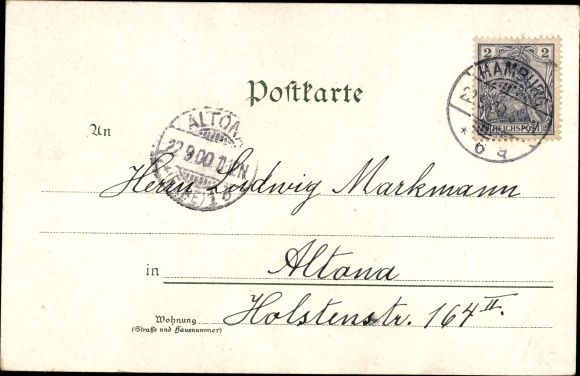 2 2
REICHSPOST
HAMBURG
6 a
Postkarte
An
ALTONA
22.9.00
(ELBE) 1 b
Herrn Ludwig Markmann
in Altona
Wohnung Holstenstr. 164 II.
(Straße und Hausnummer)